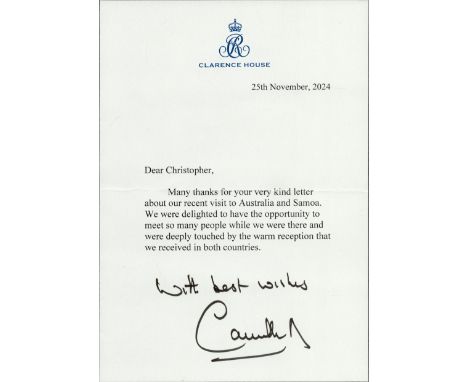 CLARENCE HOUSE
25th November, 2024
Dear Christopher,
Many thanks for your very kind letter
about our recent visit to Australia and Samoa.
We were delighted to have the opportunity to
meet so many people while we were there and
were deeply touched by the warm reception that
we received in both countries.
With best wishes